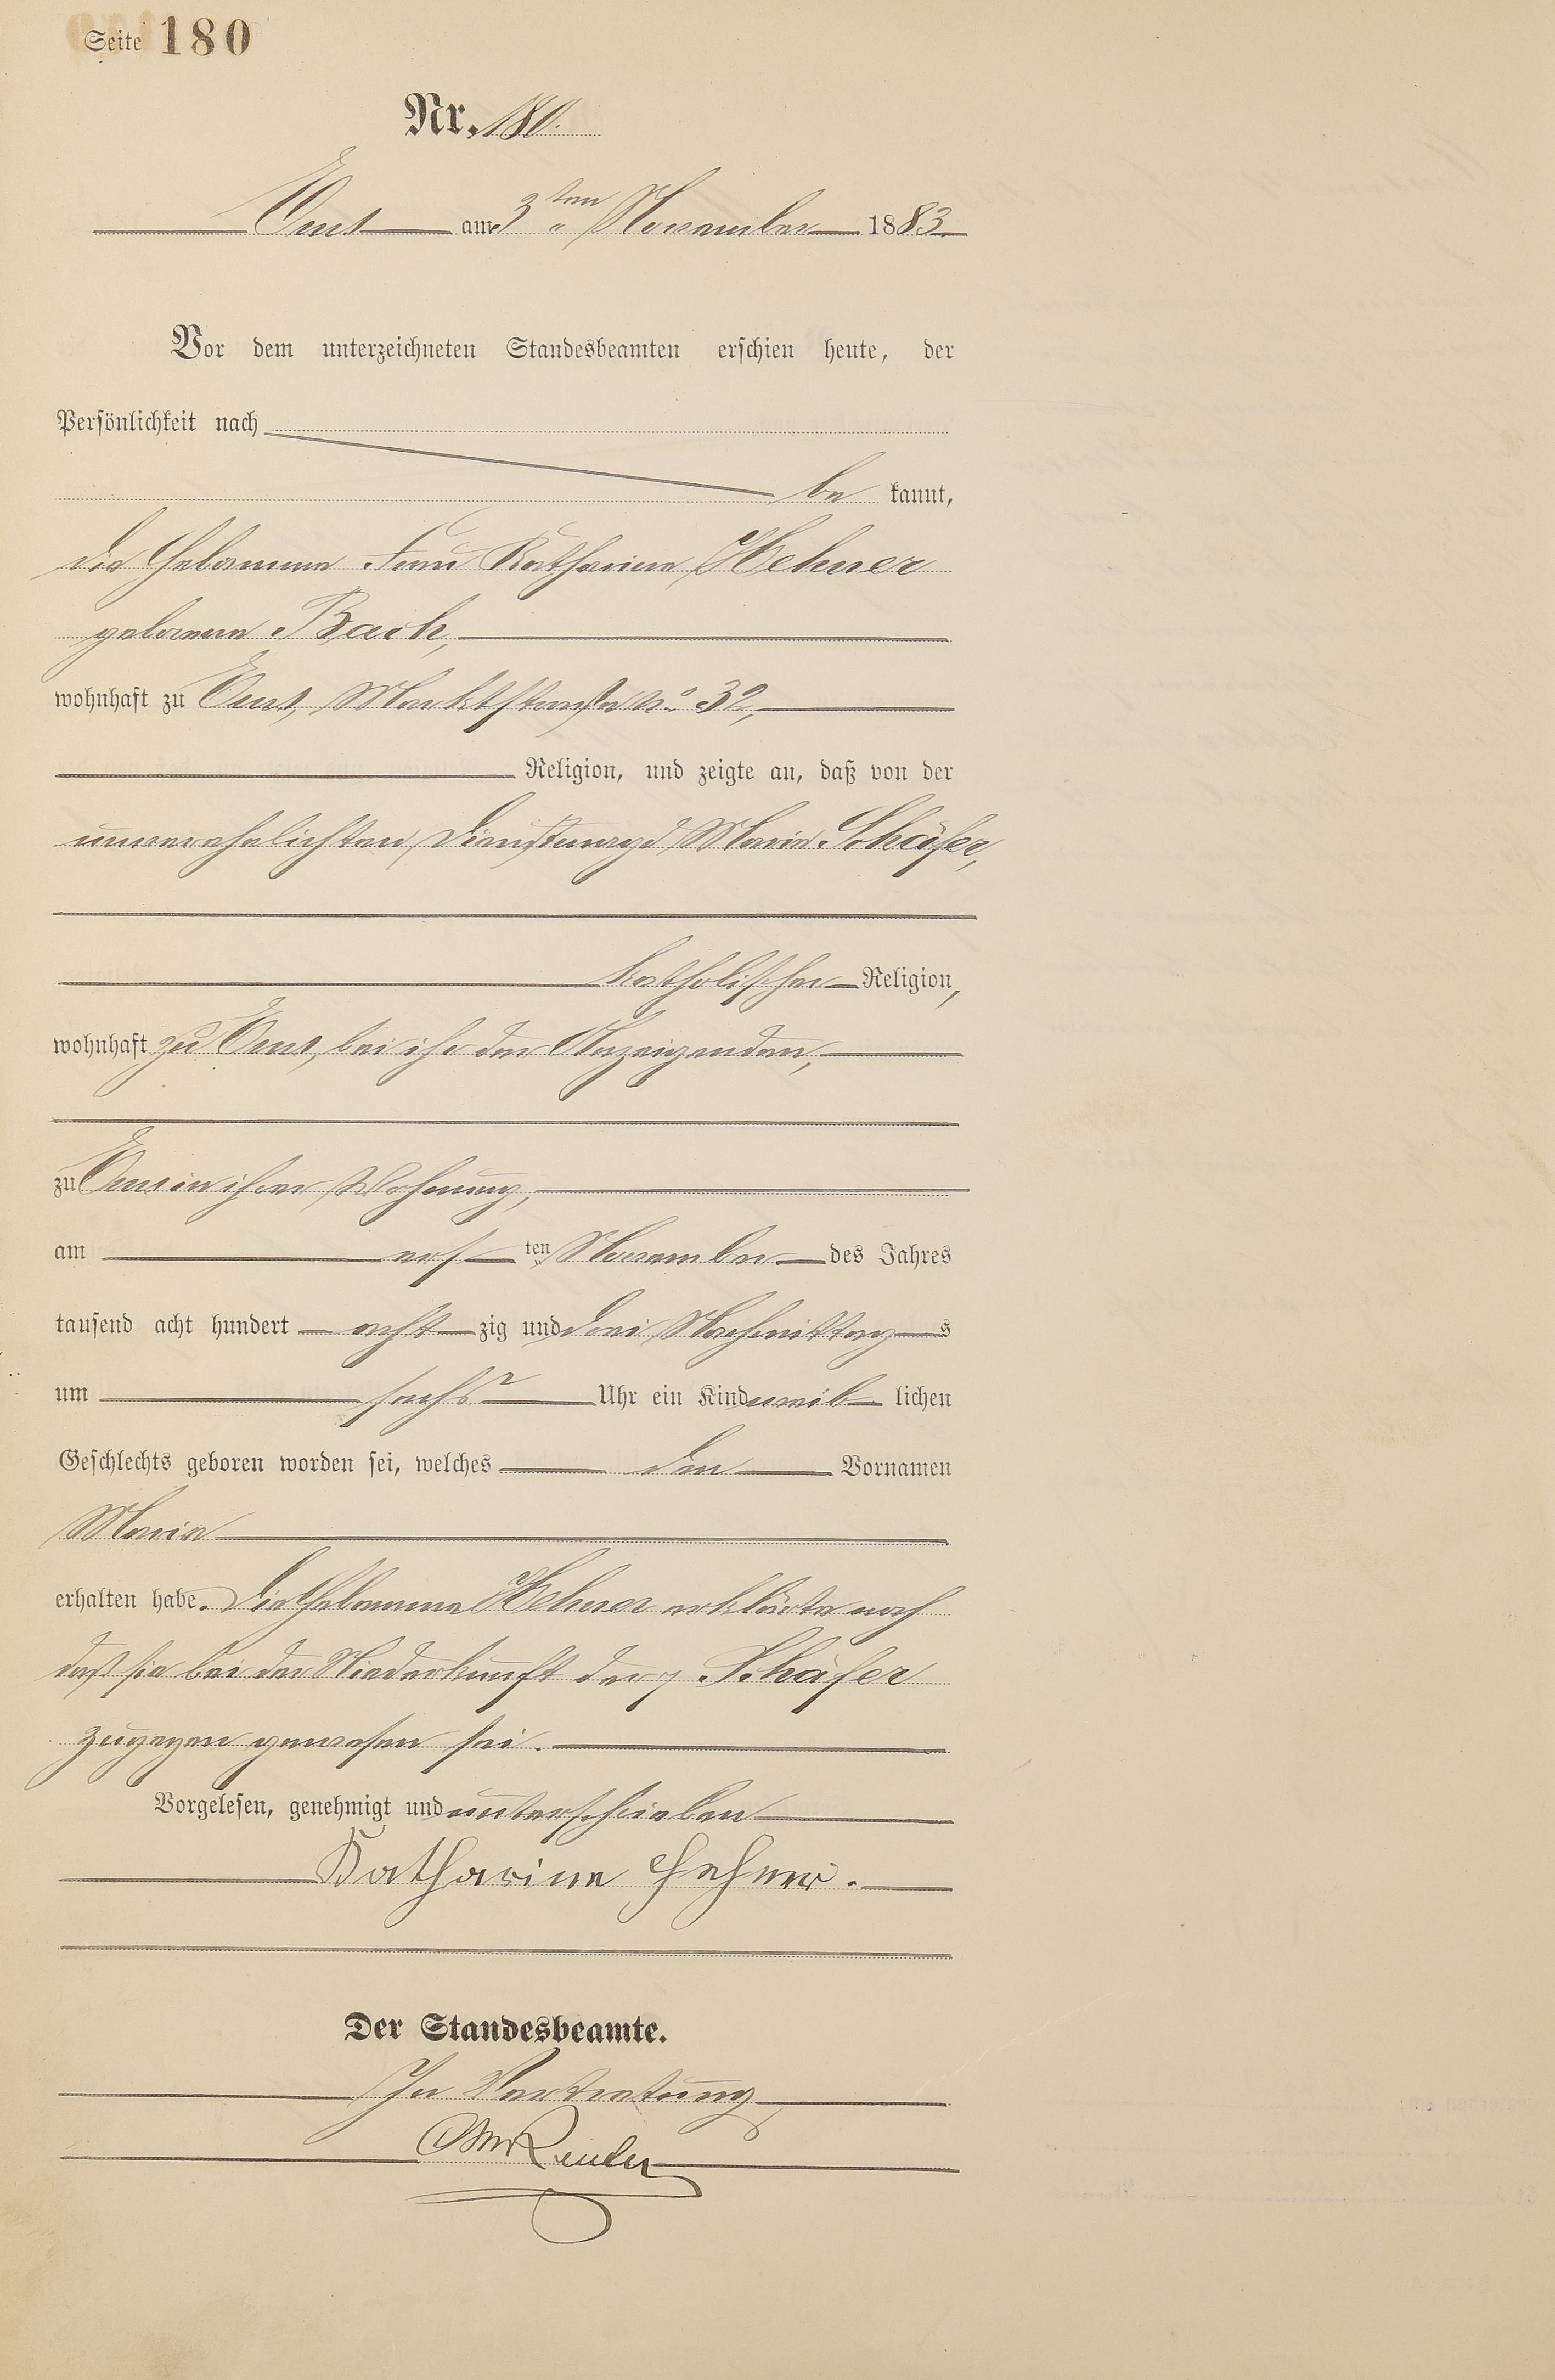 Seite 180
Nr. 180.
Ems am 3ten November 1883
Vor dem unterzeichneten Standesbeamten erschien heute, der
Persönlichkeit nach
be kannt,
die Hebamme Frau Katharina Hehner
geborene Bach,
wohnhaft zu Ems, Marktstraße No 32,
Religion, und zeigte an, daß von der
unverehelichten Dienstmagd Maria Schäfer,
katholischer Religion,
wohnhaft zu Ems, bei ihr der Anzeigenden,
zu Ems in ihrer Wohnung,
am ers ten November des Jahres
tausend acht hundert acht zig und drei Nachmittag s
um sechs Uhr ein Kind weib lichen
Geschlechts geboren worden sei, welches den Vornamen
Maria
erhalten habe. Die Hebamme Hehner erklärte noch
daß sie bei der Niederkunft der Schäfer
zugegen gewesen sei.
Vorgelesen, genehmigt und unterschrieben
Katharine Hehner.
Der Standesbeamte.
In Vertretung